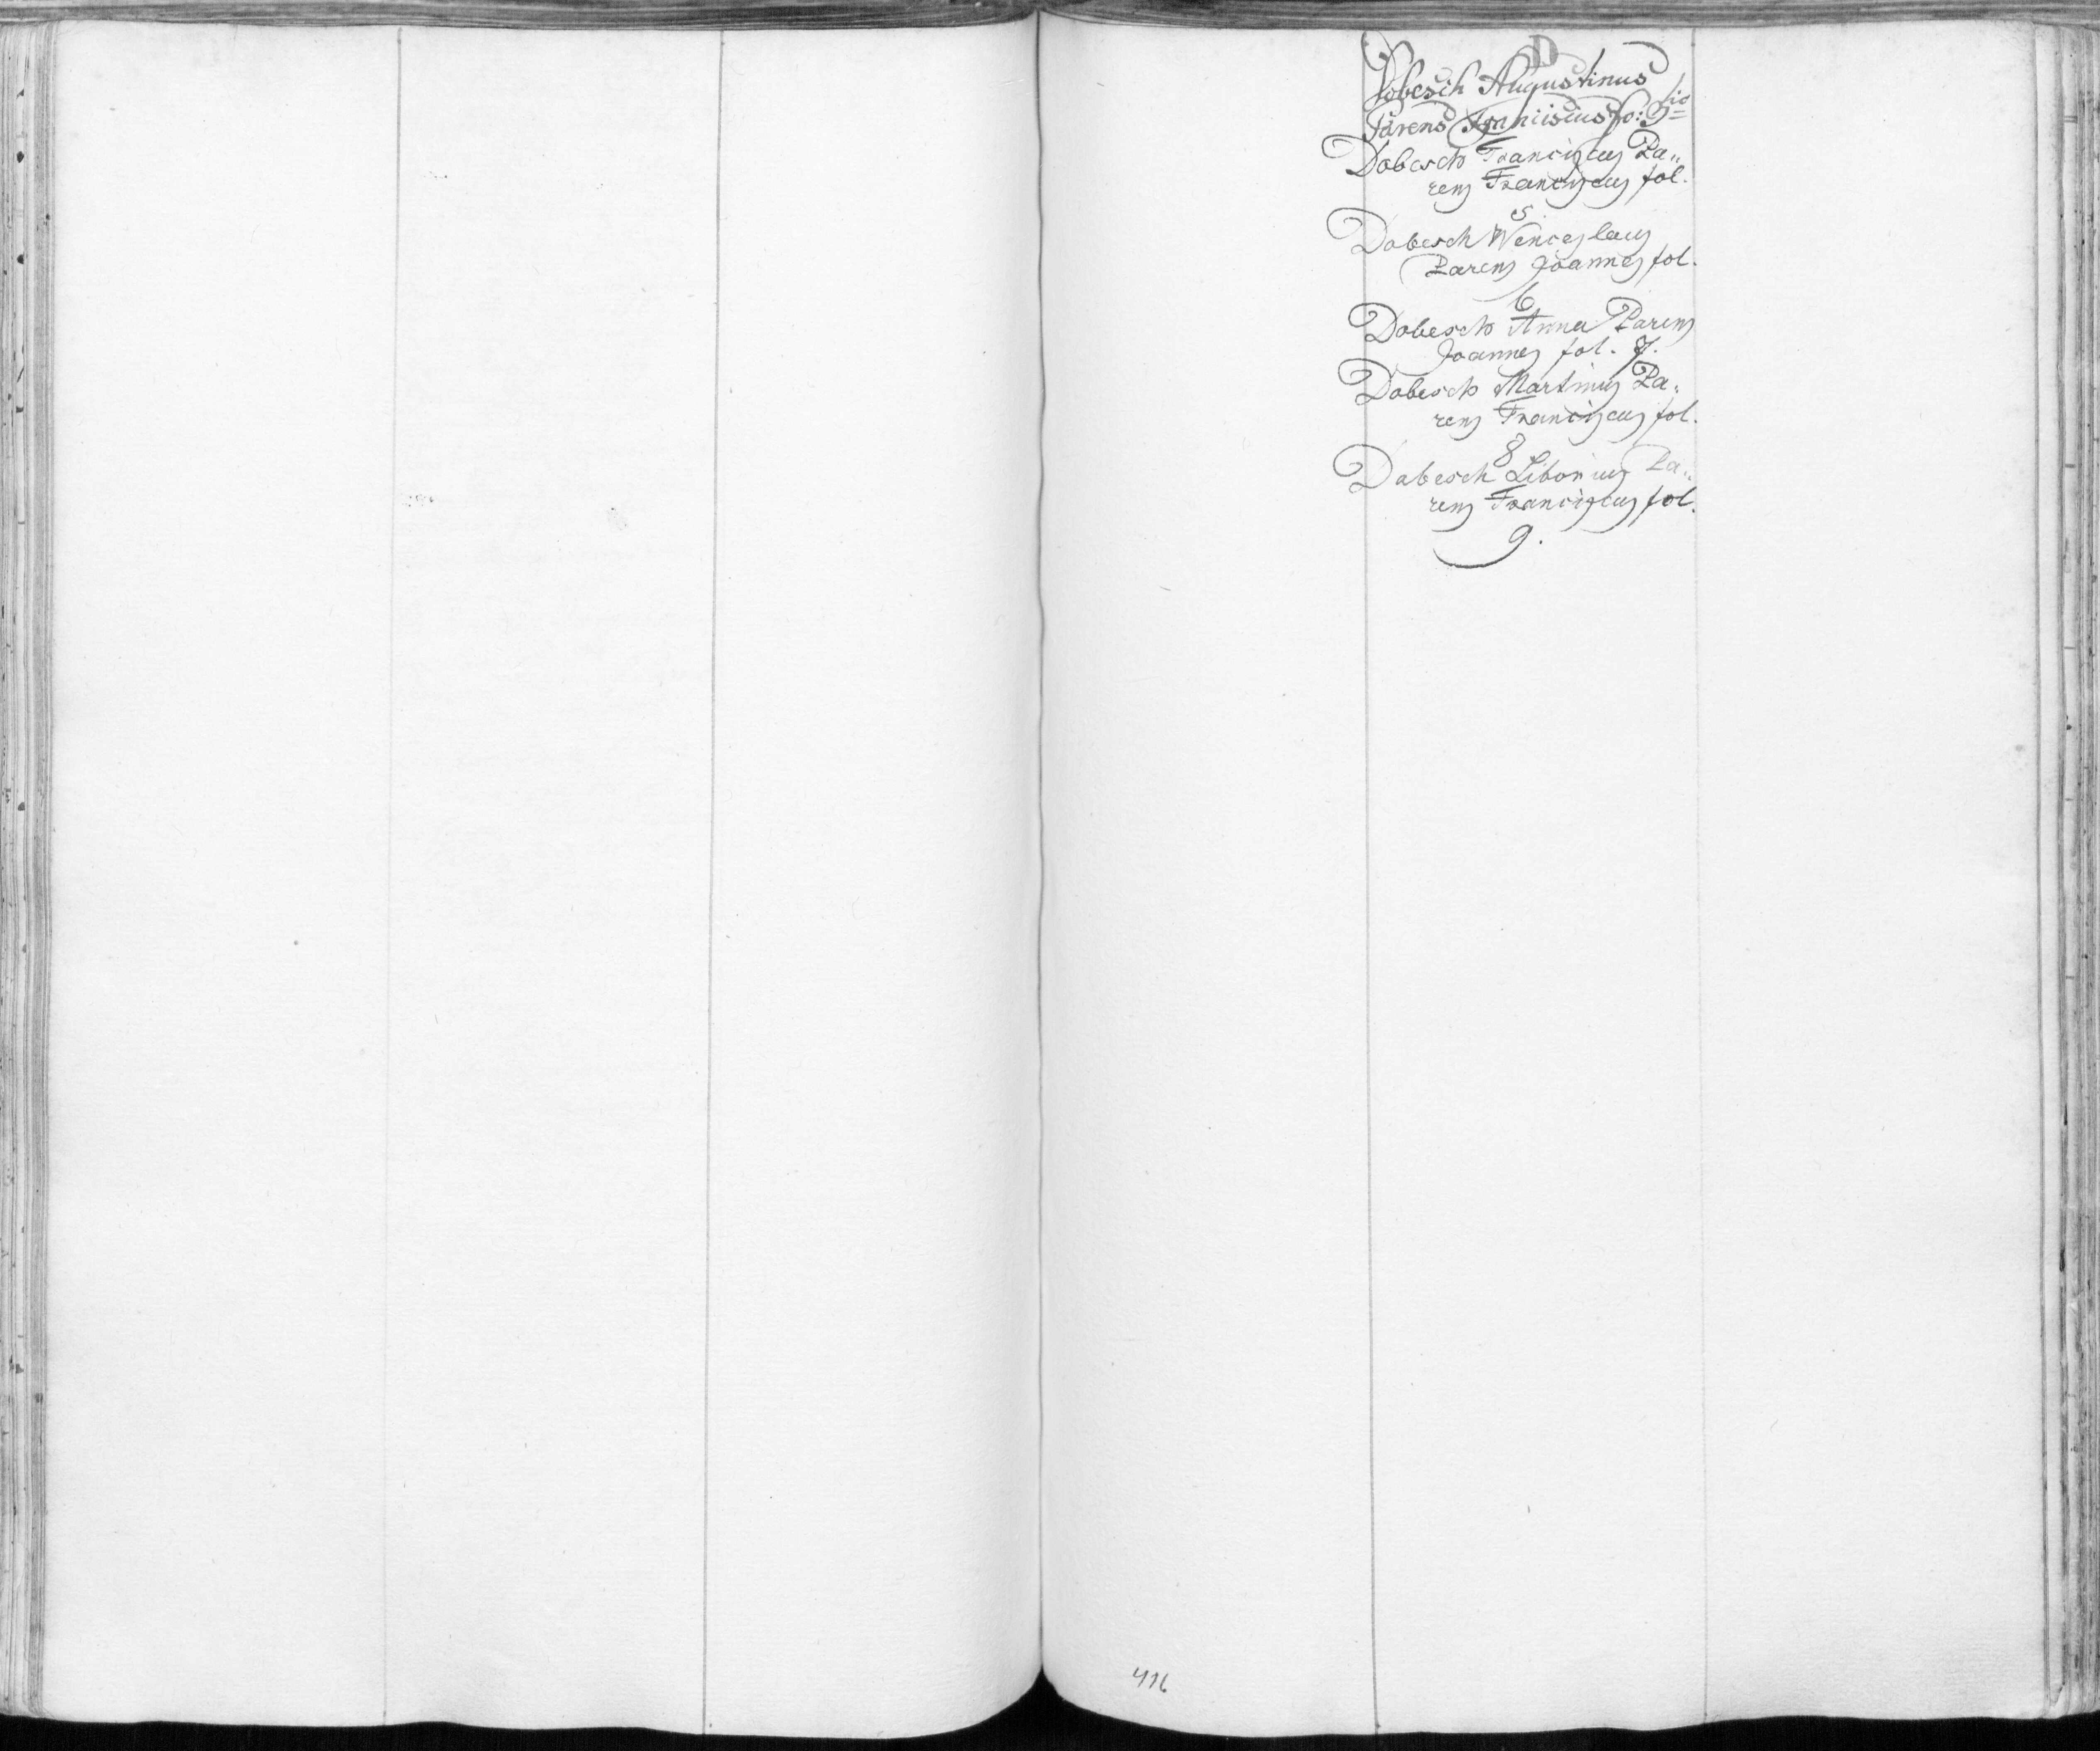 D
Dobesch Augustinus
Parens Franciscus fo: 3tio
Dobesch Franciscus Pa„
rens Franciscus fol.
5.
Dobesch Wenceslaus
Parens Joannes fol.
6
Dobesch Anna Parens
Joannes fol. 7.
Dobesch Martinus Pa„
rens Franciscus fol.
8
Dobesch Liborius Pa„
rens Franciscus fol.
9.
416